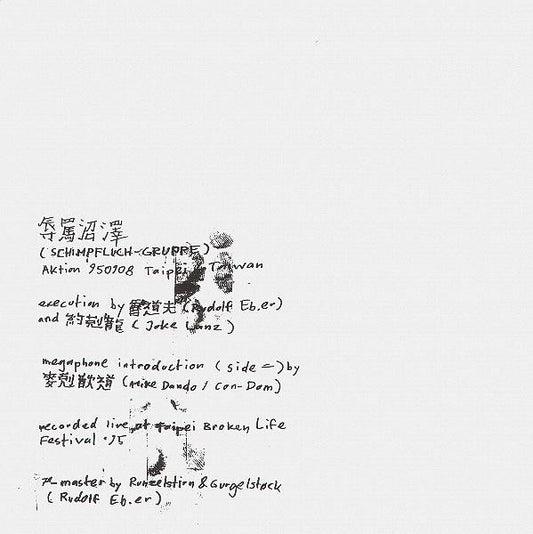 辱罵沼澤
(SCHIMPFLUCH-GRUPPE)
Aktion 950908 Taipei, Taiwan
execution by 道夫 (Rudolf Eb.er)
and 約剋龍 (Joke Lanz)
megaphone introduction (side 二) by
麥剋 (Mike Dando / Con-Dom)
recorded live at Taipei Broken Life
Festival '95
master by Runzelstirn & Gurgelstøck
(Rudolf Eb.er)